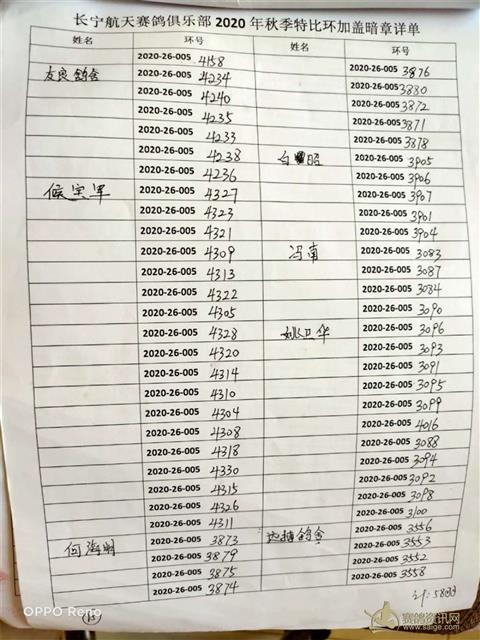 长宁航天赛鸽俱乐部 2020 年秋季特比环加盖暗章详单
姓名 环号 姓名 环号
2020-26-005 4158 2020-26-005 3876
友良鸽舍 2020-26-005 4234 2020-26-005 3880
2020-26-005 4240 2020-26-005 3872
2020-26-005 4235 2020-26-005 3871
2020-26-005 4233 2020-26-005 3878
2020-26-005 4238 白 昭 2020-26-005 3905
2020-26-005 4236 2020-26-005 3906
侯宝军 2020-26-005 4327 2020-26-005 3907
2020-26-005 4323 2020-26-005 3901
2020-26-005 4321 2020-26-005 3904
2020-26-005 4309 冯南 2020-26-005 3083
2020-26-005 4313 2020-26-005 3087
2020-26-005 4322 2020-26-005 3084
2020-26-005 4305 2020-26-005 3090
2020-26-005 4328 姚卫华 2020-26-005 3096
2020-26-005 4320 2020-26-005 3093
2020-26-005 4314 2020-26-005 3091
2020-26-005 4310 2020-26-005 3095
2020-26-005 4304 2020-26-005 3099
2020-26-005 4308 2020-26-005 4016
2020-26-005 4318 2020-26-005 3088
2020-26-005 4330 2020-26-005 3094
2020-26-005 4315 2020-26-005 3092
2020-26-005 4326 2020-26-005 3098
2020-26-005 4311 2020-26-005 3100
何海明 2020-26-005 3873 鸽舍 2020-26-005 3556
2020-26-005 3879 2020-26-005 3553
2020-26-005 3875 2020-26-005 3552
2020-26-005 3874 2020-26-005 3558
计:58
OPPO Reno
赛鸽资讯网
www.saige.com